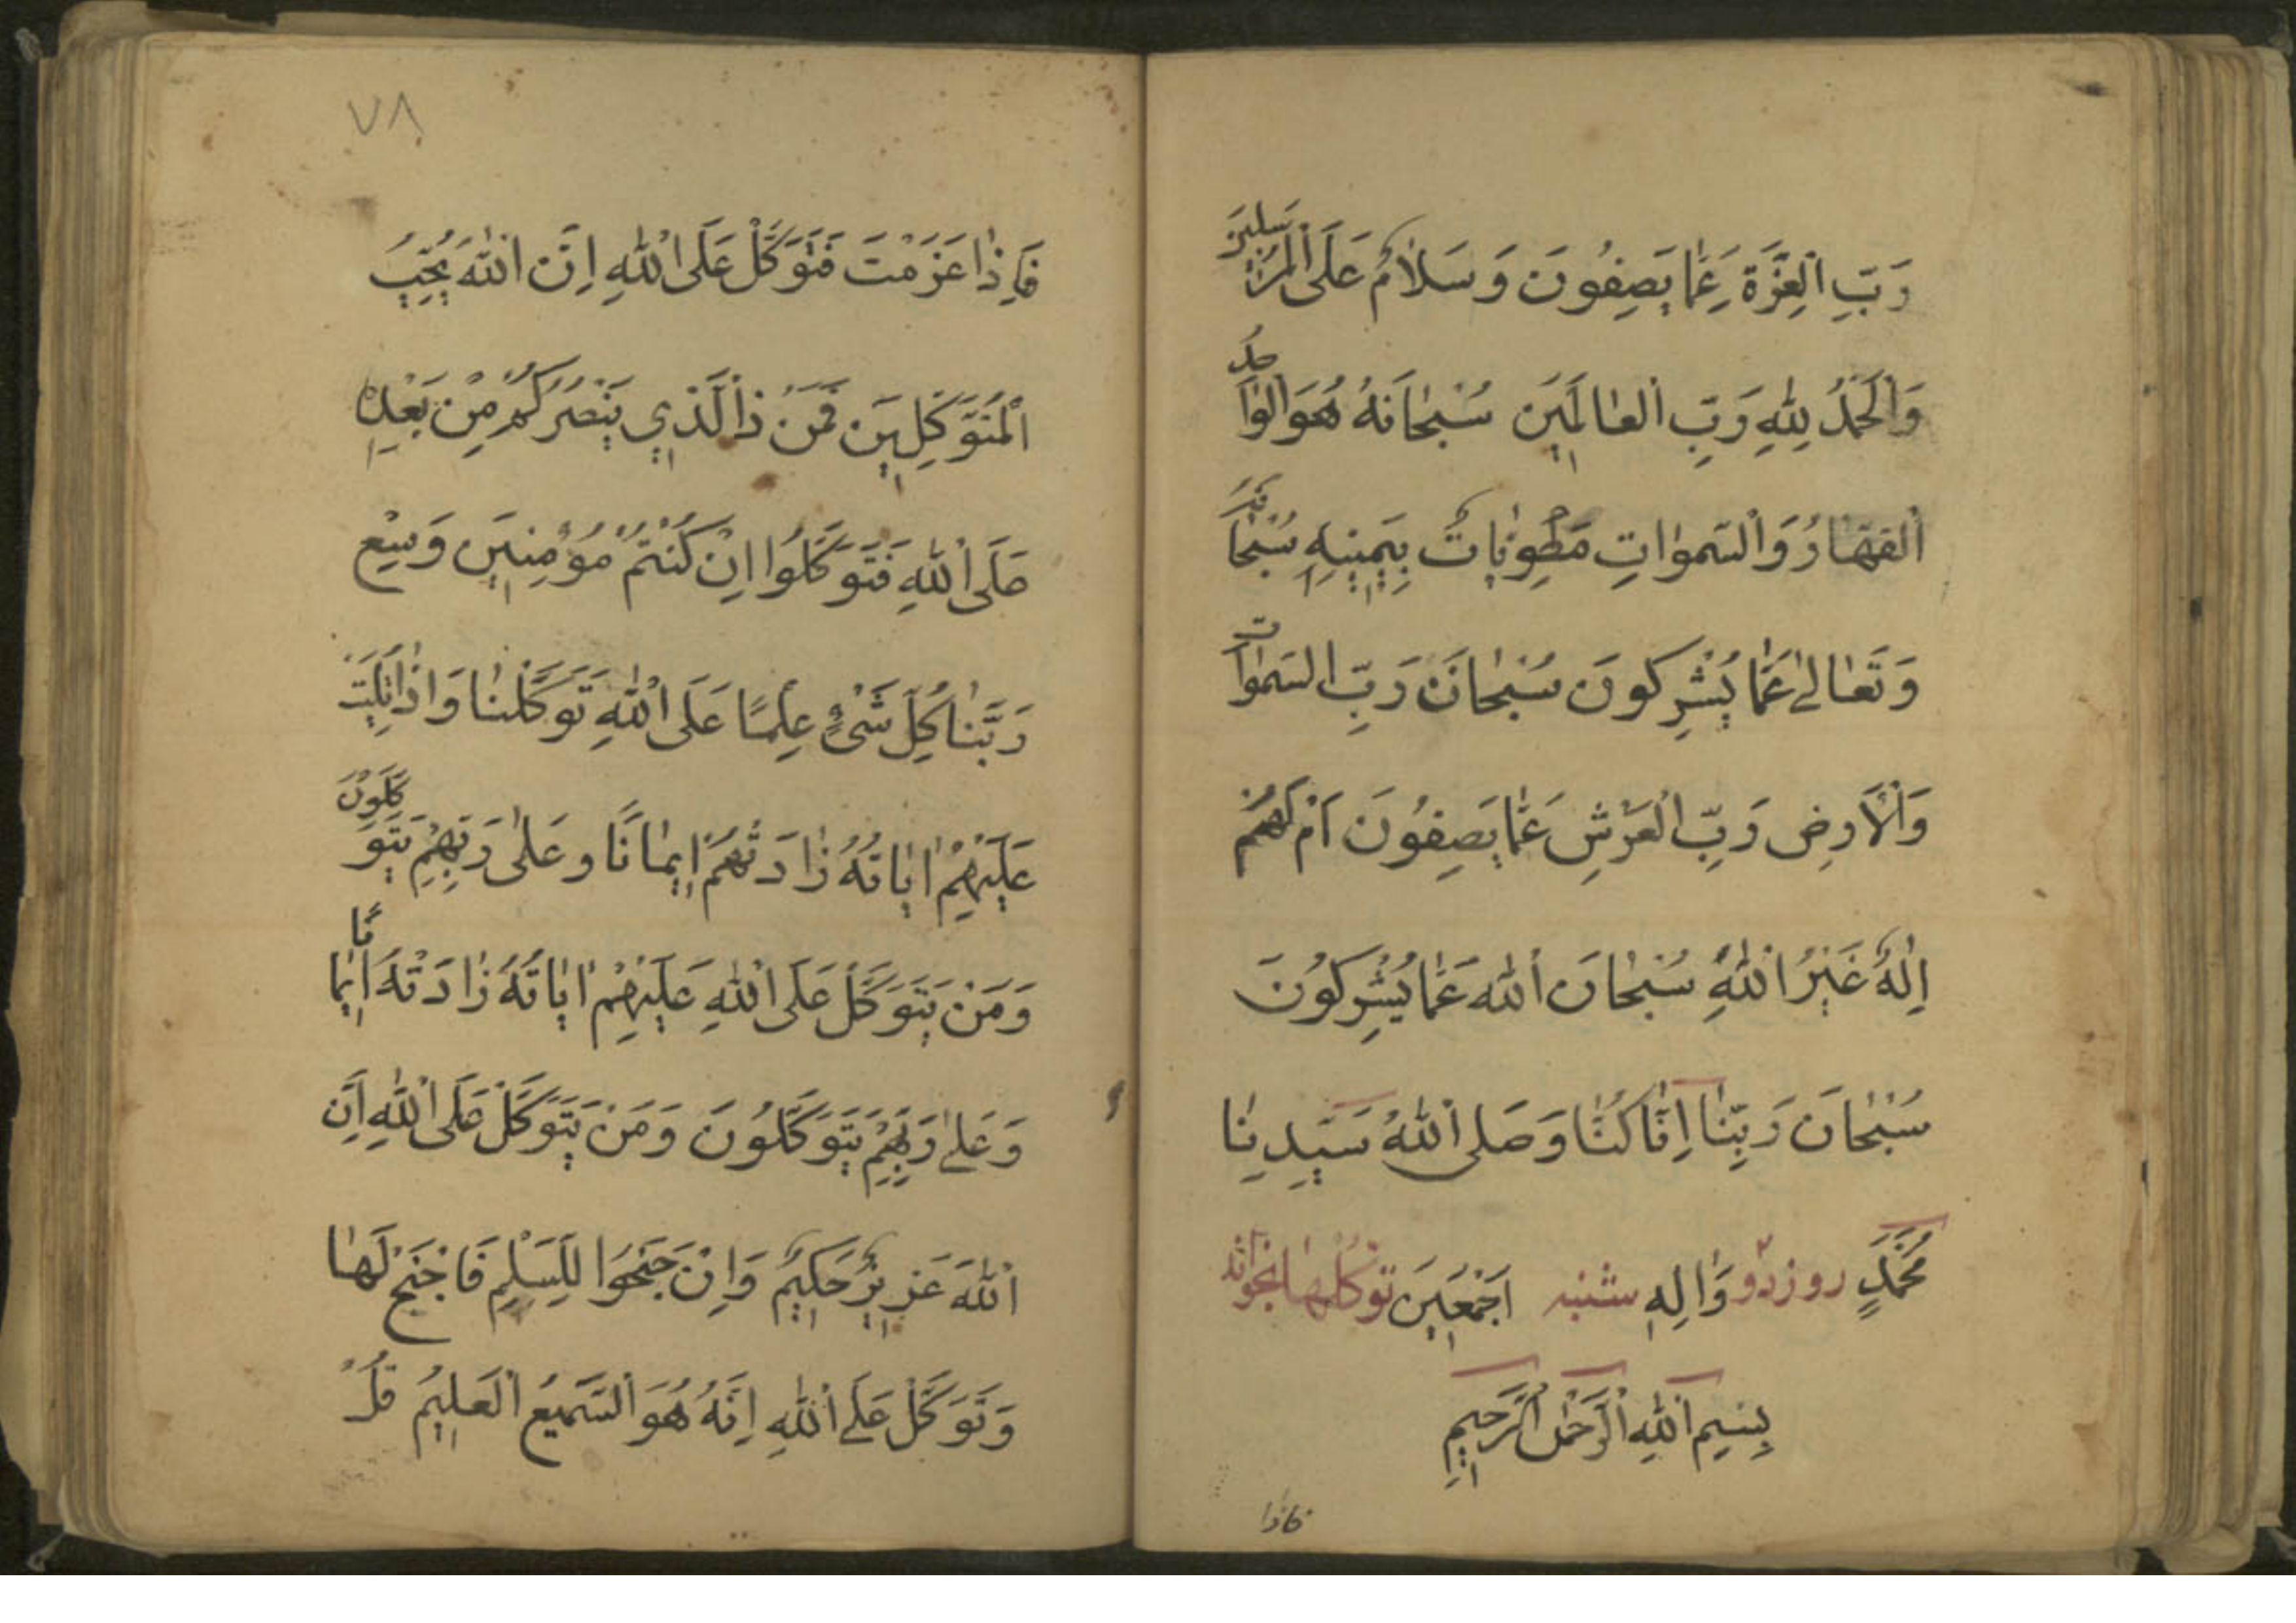 رَبِّ الْعِزَّةِ عَمّٰا يَصِفُونَ وَسَلاٰمٌ عَلَى الْمُرْسَلينَ
وَالْحَمْدُ لِلّٰهِ رَبِّ الْعٰالَمٖينَ سُبْحٰانَهُ هُوَ الْوٰاحِدُ
الْقَهّٰارُ وَالسَّمٰوٰاتِ مَطْوِيّٰاتٌ بِيَمٖينِهِ سُبْحٰانَهُ
وَتَعٰالىٰ عَمّٰا يُشْرِكُونَ سُبْحٰانَ رَبِّ السَّمٰوٰاتِ
وَالْاَرضِ رَبِّ الْعَرْشِ عَمّٰا يَصِفُونَ اَمْ لَهُمْ
اِلٰهٌ غَيْرُ اللّٰهِ سُبْحٰانَ اللّٰهِ عَمّٰا يُشْرِكُونَ
سُبْحٰانَ رَبِّنٰا اِنّٰا كُنّٰا وَصَلى اللّٰهُ سَيِّدِنٰا
مُحَمَّدٍ روز دو وَاٰلِهِ شنبه اَجْمَعٖينَ توكلها بخواند
بِسْمِ اللّٰهِ الرَّحْمٰنِ الرَّحٖيمِ
فاذا
٧٨
فَاِذٰا عَزَمْتَ فَتَوَكَّلْ عَلَى اللّٰهِ اِنَّ اللّٰهَ يُحِبُّ
الْمُتَوَكِّلٖينَ فَمَنْ ذَا الَّذٖي يَنْصُرُكُمْ مِنْ بَعْدِهٖ
عَلَى اللّٰهِ فَتَوَكَّلُوا اِنْ كُنْتُمْ مُؤْمِنٖينَ وَسِعَ
رَبُّنٰا كُلَّ شَيْءٍ عِلْمًا عَلَى اللّٰهِ تَوَكَّلْنٰا وَاِذٰا تُلِيَتْ
عَلَيْهِمْ اٰيٰاتُهُ زٰادَتْهُمْ اٖيمٰانًا وعَلىٰ رَبِّهِمْ يَتَوَكَّلُونَ
وَمَنْ يَتَوَكَّلْ عَلَى اللّٰهِ عَلَيْهِمْ اٰيٰاتُهُ زٰادَتْهُ اٖيمٰانًا
وَعَلىٰ رَبِّهِمْ يَتَوَكَّلُونَ وَمَنْ يَتَوَكَّلْ عَلَى اللّٰهِ اِنَّ
اللّٰهَ عَزٖيزٌ حَكٖيمٌ وَاِنْ جَنَحُوا لِلسَّلْمِ فَاجْنَحْ لَهٰا
وَتَوَكَّلْ عَلَى اللّٰهِ اِنَّهُ هُوَ السَّمٖيعُ الْعَلٖيمُ قُلْ